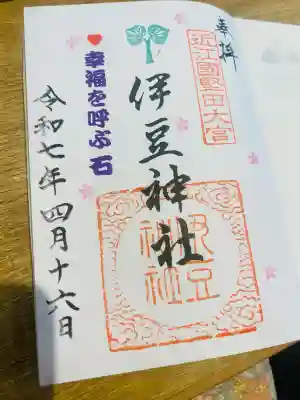 奉拝
近江國堅田大宮
伊豆神社
伊豆神社
幸福を呼ぶ石
令和七年四月十六日